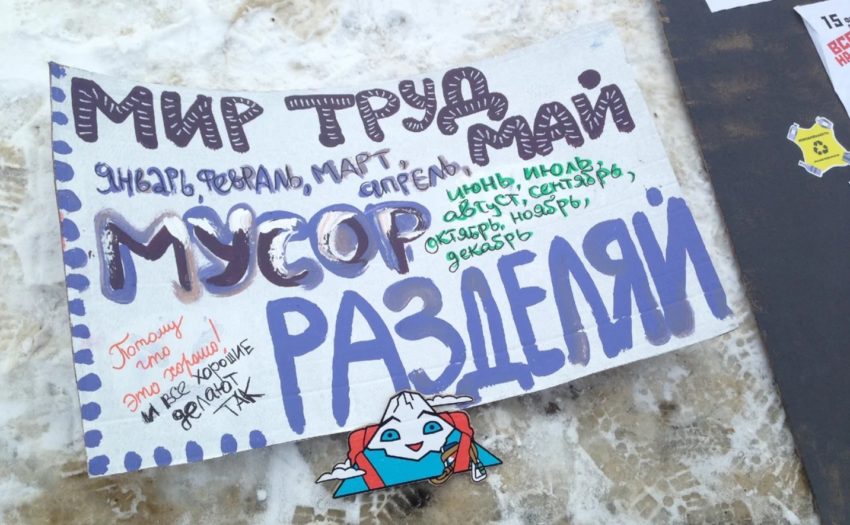 МИР ТРУД МАЙ
ЯНВАРЬ, ФЕВРАЛЬ, МАРТ, апрель,
июнь, июль,
август, сентябрь,
октябрь, ноябрь,
декабрь
МУСОР
РАЗДЕЛЯЙ
Потому
что
это хорошо!
и все хорошие
делают
ТАК
15
ВСЕ